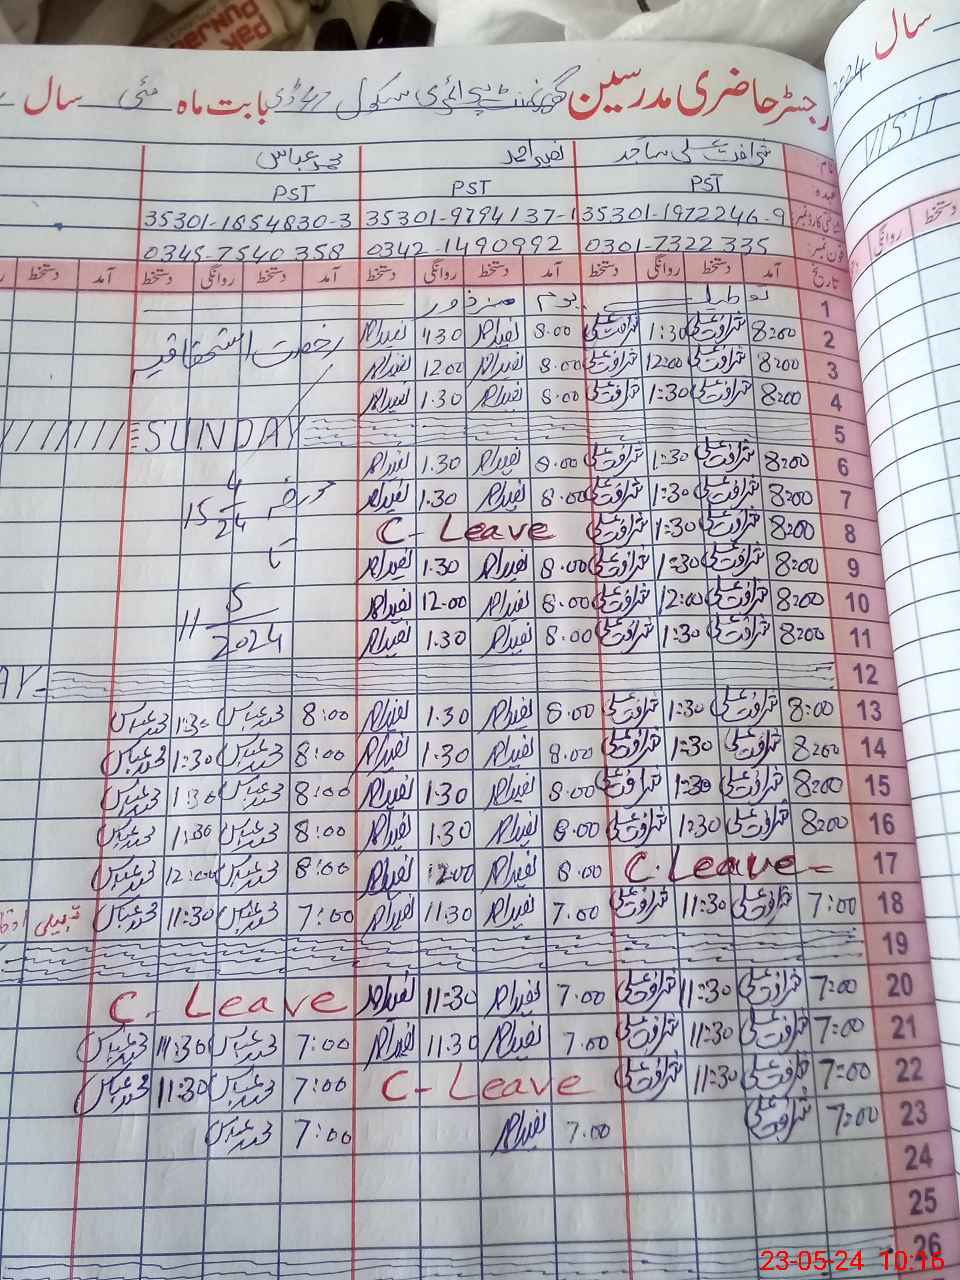 رجسٹر حاضری مدرسین گورنمنٹ پرائمری سکول 47 ڈی بابت ماہ مئی سال
2024
سال
VISIT
نام: شرافت علی ساجد نصیر احمد محمد عباس
عہدہ PST PST PST
35301-1972246-9 35301-9794137-1 35301-1854830-3
فون نمبر: 0301-7322335 0342-1490992 0345-7540358
تاریخ آمد دستخط روانگی دستخط آمد دستخط روانگی دستخط آمد دستخط روانگی دستخط آمد دستخط
روانگی دستخط
1 تعطیل یوم مزدور
2 8:00 شرافت علی 1:30 شرافت علی 8.00 نصیر احمد 1.30 نصیر احمد رخصت استحقاقیہ
3 8:00 شرافت علی 12:00 شرافت علی 8.00 نصیر احمد 12.00 نصیر احمد
4 8:00 شرافت علی 1:30 شرافت علی 8.00 نصیر احمد 1.30 نصیر احمد
5 SUNDAY
6 8:00 شرافت علی 1:30 شرافت علی 8.00 نصیر احمد 1.30 نصیر احمد
7 8:00 شرافت علی 1:30 شرافت علی 8.00 نصیر احمد 1.30 نصیر احمد مورخہ 15 4/24
8 8:00 شرافت علی 1:30 شرافت علی C- Leave
9 8:00 شرافت علی 1:30 شرافت علی 8.00 نصیر احمد 1.30 نصیر احمد تا
10 8:00 شرافت علی 12:00 شرافت علی 8.00 نصیر احمد 12.00 نصیر احمد 11 5/2024
11 8:00 شرافت علی 1:30 شرافت علی 8.00 نصیر احمد 1.30 نصیر احمد
12 AY-
13 8:00 شرافت علی 1:30 شرافت علی 8.00 نصیر احمد 1.30 نصیر احمد 8:00 محمد عباس 1:30 محمد عباس
14 8:00 شرافت علی 1:30 شرافت علی 8.00 نصیر احمد 1:30 نصیر احمد 8:00 محمد عباس 1:30 محمد عباس
15 8:00 شرافت علی 1:30 شرافت علی 8.00 نصیر احمد 1.30 نصیر احمد 8:00 محمد عباس 1:30 محمد عباس
16 8:00 شرافت علی 1:30 شرافت علی 8.00 نصیر احمد 1.30 نصیر احمد 8:00 محمد عباس 1:30 محمد عباس
17 C. Leave- 8.00 نصیر احمد 12.00 نصیر احمد 8:00 محمد عباس 12:00 محمد عباس
18 7:00 شرافت علی 11:30 شرافت علی 7.00 نصیر احمد 11.30 نصیر احمد 7:00 محمد عباس 11:30 محمد عباس تبدیلی
19
20 7:00 شرافت علی 11:30 شرافت علی 7.00 نصیر احمد 11:30 نصیر احمد C- Leave
21 7:00 شرافت علی 11:30 شرافت علی 7.00 نصیر احمد 11.30 نصیر احمد 7:00 محمد عباس 11:30 محمد عباس
22 7:00 شرافت علی 11:30 شرافت علی C- Leave 7:00 محمد عباس 11:30 محمد عباس
23 7:00 شرافت علی 7.00 نصیر احمد 7:00 محمد عباس
24
25
26
23-05-24 10:16